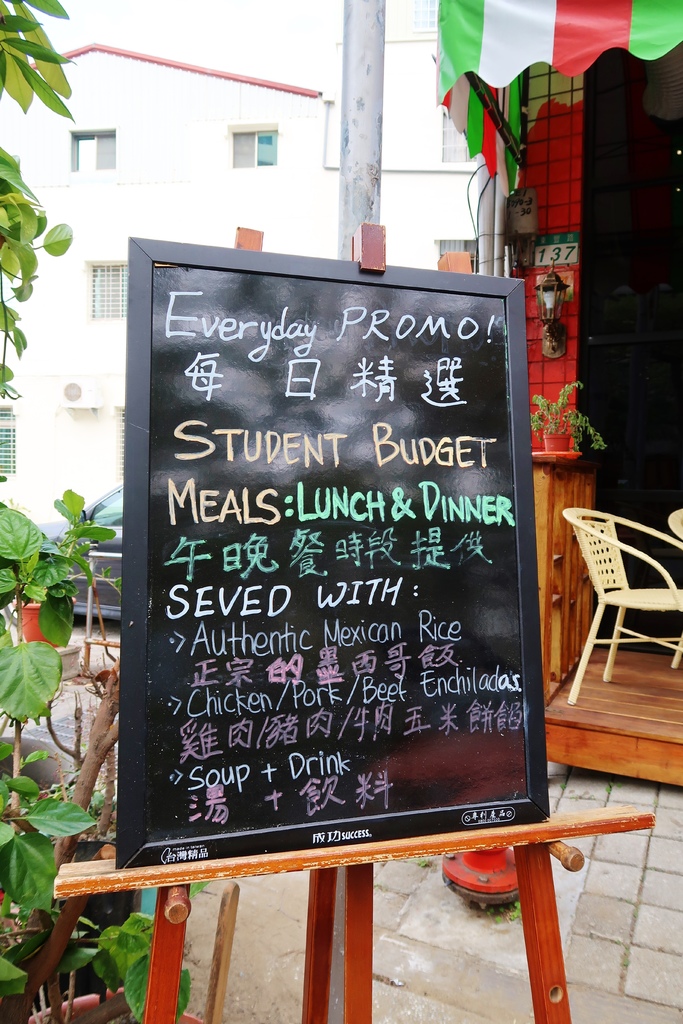 137
Everyday PROMO!
每日精選
STUDENT BUDGET
MEALS: LUNCH & DINNER
午晚餐時段提供
SEVED WITH:
> Authentic Mexican Rice
正宗的墨西哥飯
> Chicken/Pork/Beef Enchiladas.
雞肉/豬肉/牛肉玉米餅餡
> Soup + Drink
湯 + 飲料
成功 SUCCESS.
專利產品
made in taiwan
台灣精品